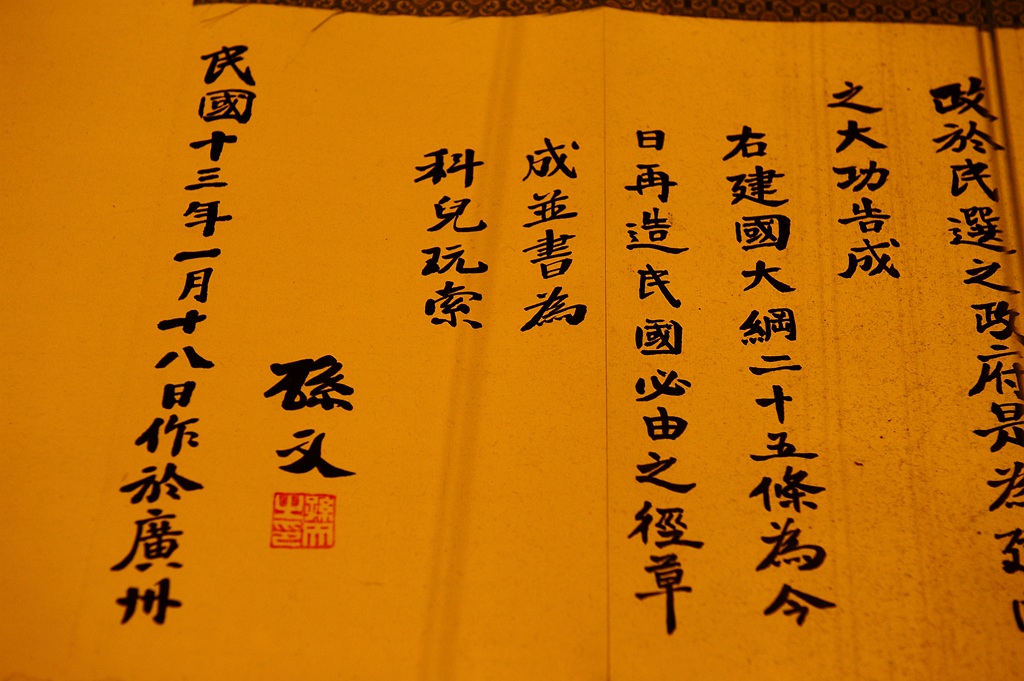 政於民選之政府是為建
之大功告成
右建國大綱二十五條為今
日再造民國必由之徑草
成並書為
科兒玩索
孫文
孫文之印
民國十三年一月十八日作於廣州